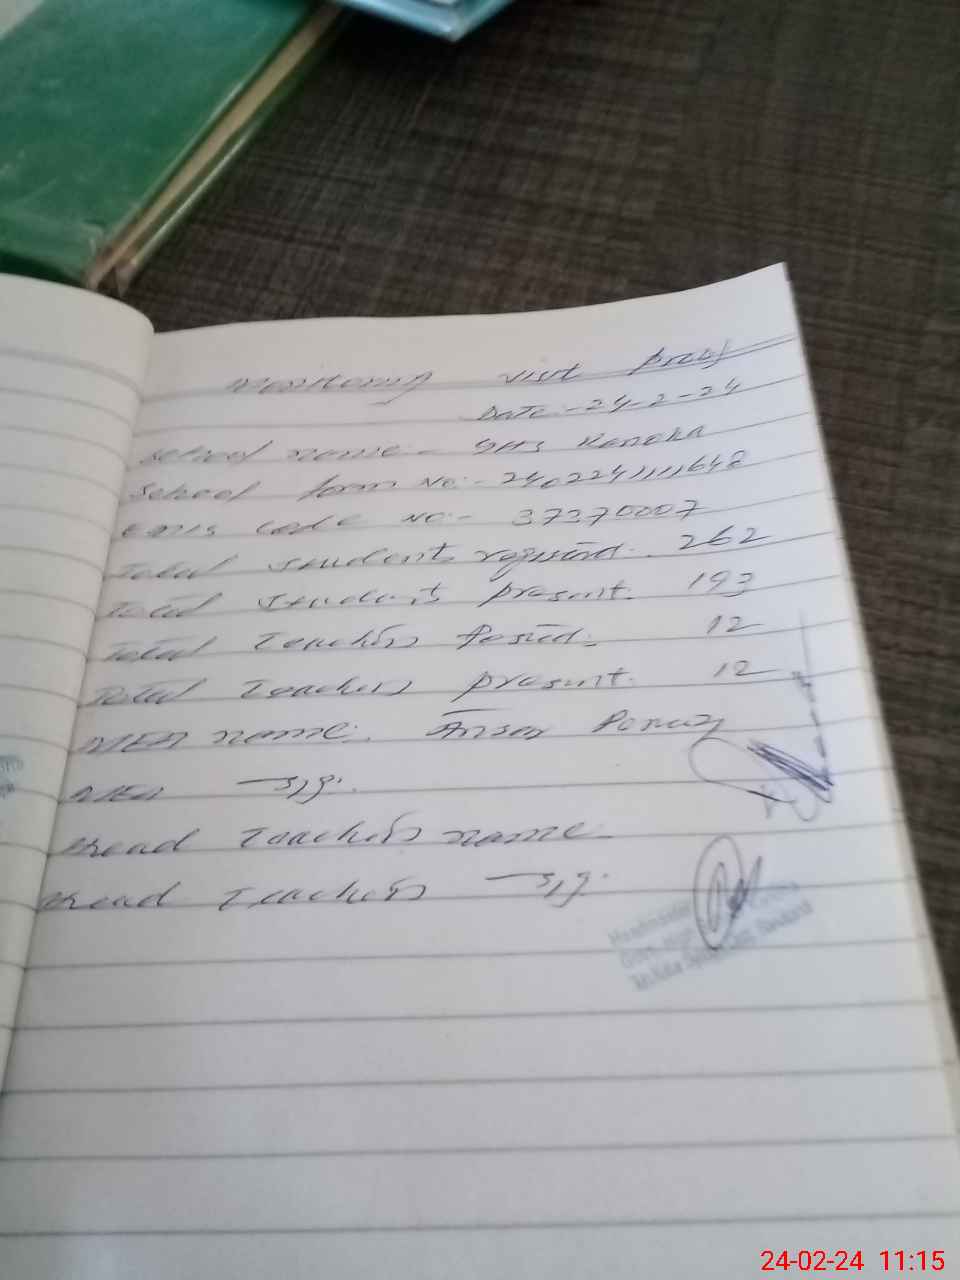 Monitoring visit proof
Date:- 24-2-24
School name - GHS Kandha
School form No:- 240224111648
EMIS Code No:- 37370007
Total students registerd. 262
Total students present. 193
Total Teachers Posted: 12
Total Teachers present. 12
MEA name:. Ansar Pervaz
MEA sig.
Head Teachers name
Head Teachers sig.
Headmaster
24-02-24 11:15